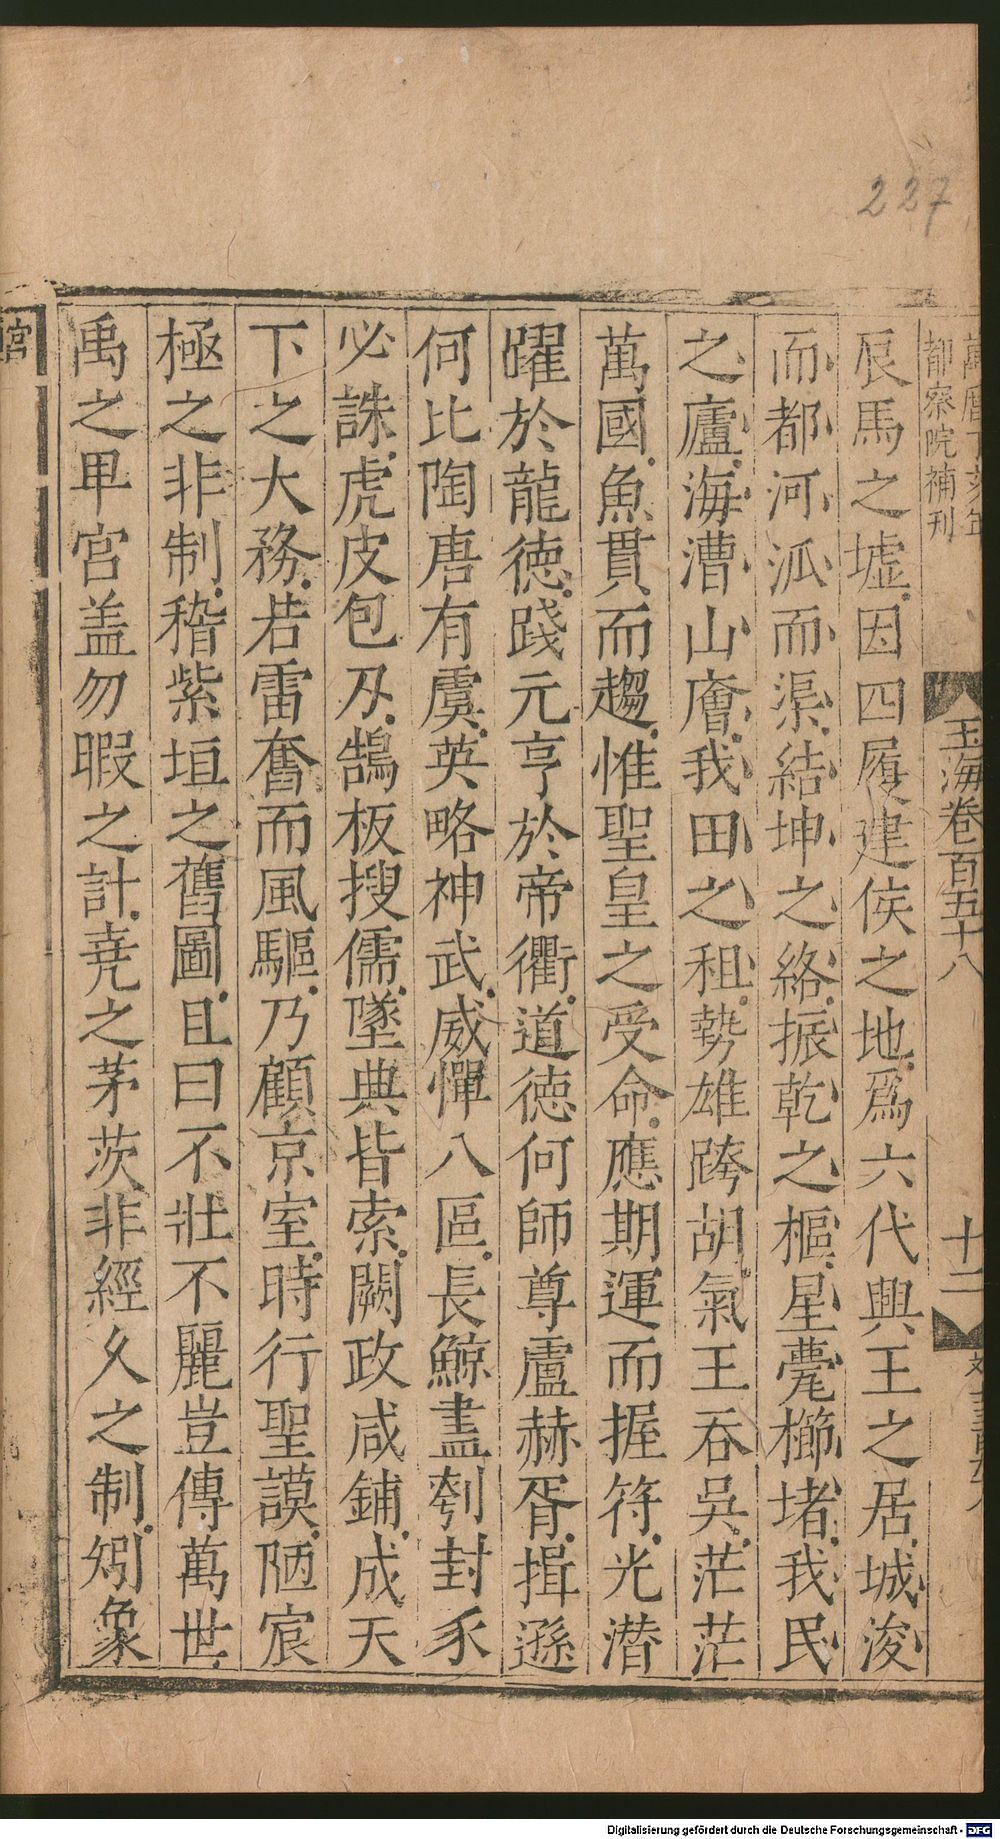 227
萬曆丁亥年
都察院補刊
玉海卷百五十八
十二
辰馬之墟因四履建侯之地爲六代興王之居城浚
而都河泒而渠結坤之絡振乾之樞星甍櫛堵我民
之廬海漕山廥我田之租勢雄跨胡氣王吞吳茫茫
萬國魚貫而趨惟聖皇之受命應期運而握符光潜
躍於龍德踐元亨於帝衢道德何師尊盧赫胥揖遜
何比陶唐有虞英略神武威憚八區長鯨盡刳封豕
必誅虎皮包刃鵠板搜儒墜典皆索闕政咸鋪成天
下之大務若雷奮而風驅乃顧京室時行聖謨陋宸
極之非制稽紫垣之舊圖且曰不壯不麗豈傳萬世
禹之卑宮盖勿暇之計堯之茅茨非經久之制矧象
宮
Digitalisierung gefördert durch die Deutsche Forschungsgemeinschaft - DFG